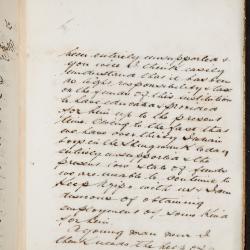 been entirely unsupported &
you will I think easily
understand that it has been
no light responsibility & tax
on the funds of this institution
to have educated & provided
for him up to the present
time. Owing to the fact that
we have over thirty
boys in the today
entirely unsupported & the
present low state of funds
we are unable to continue to
keep with us & I am
desirous of obtaining
employment of some kind
for him.
A young man now I
think needs the